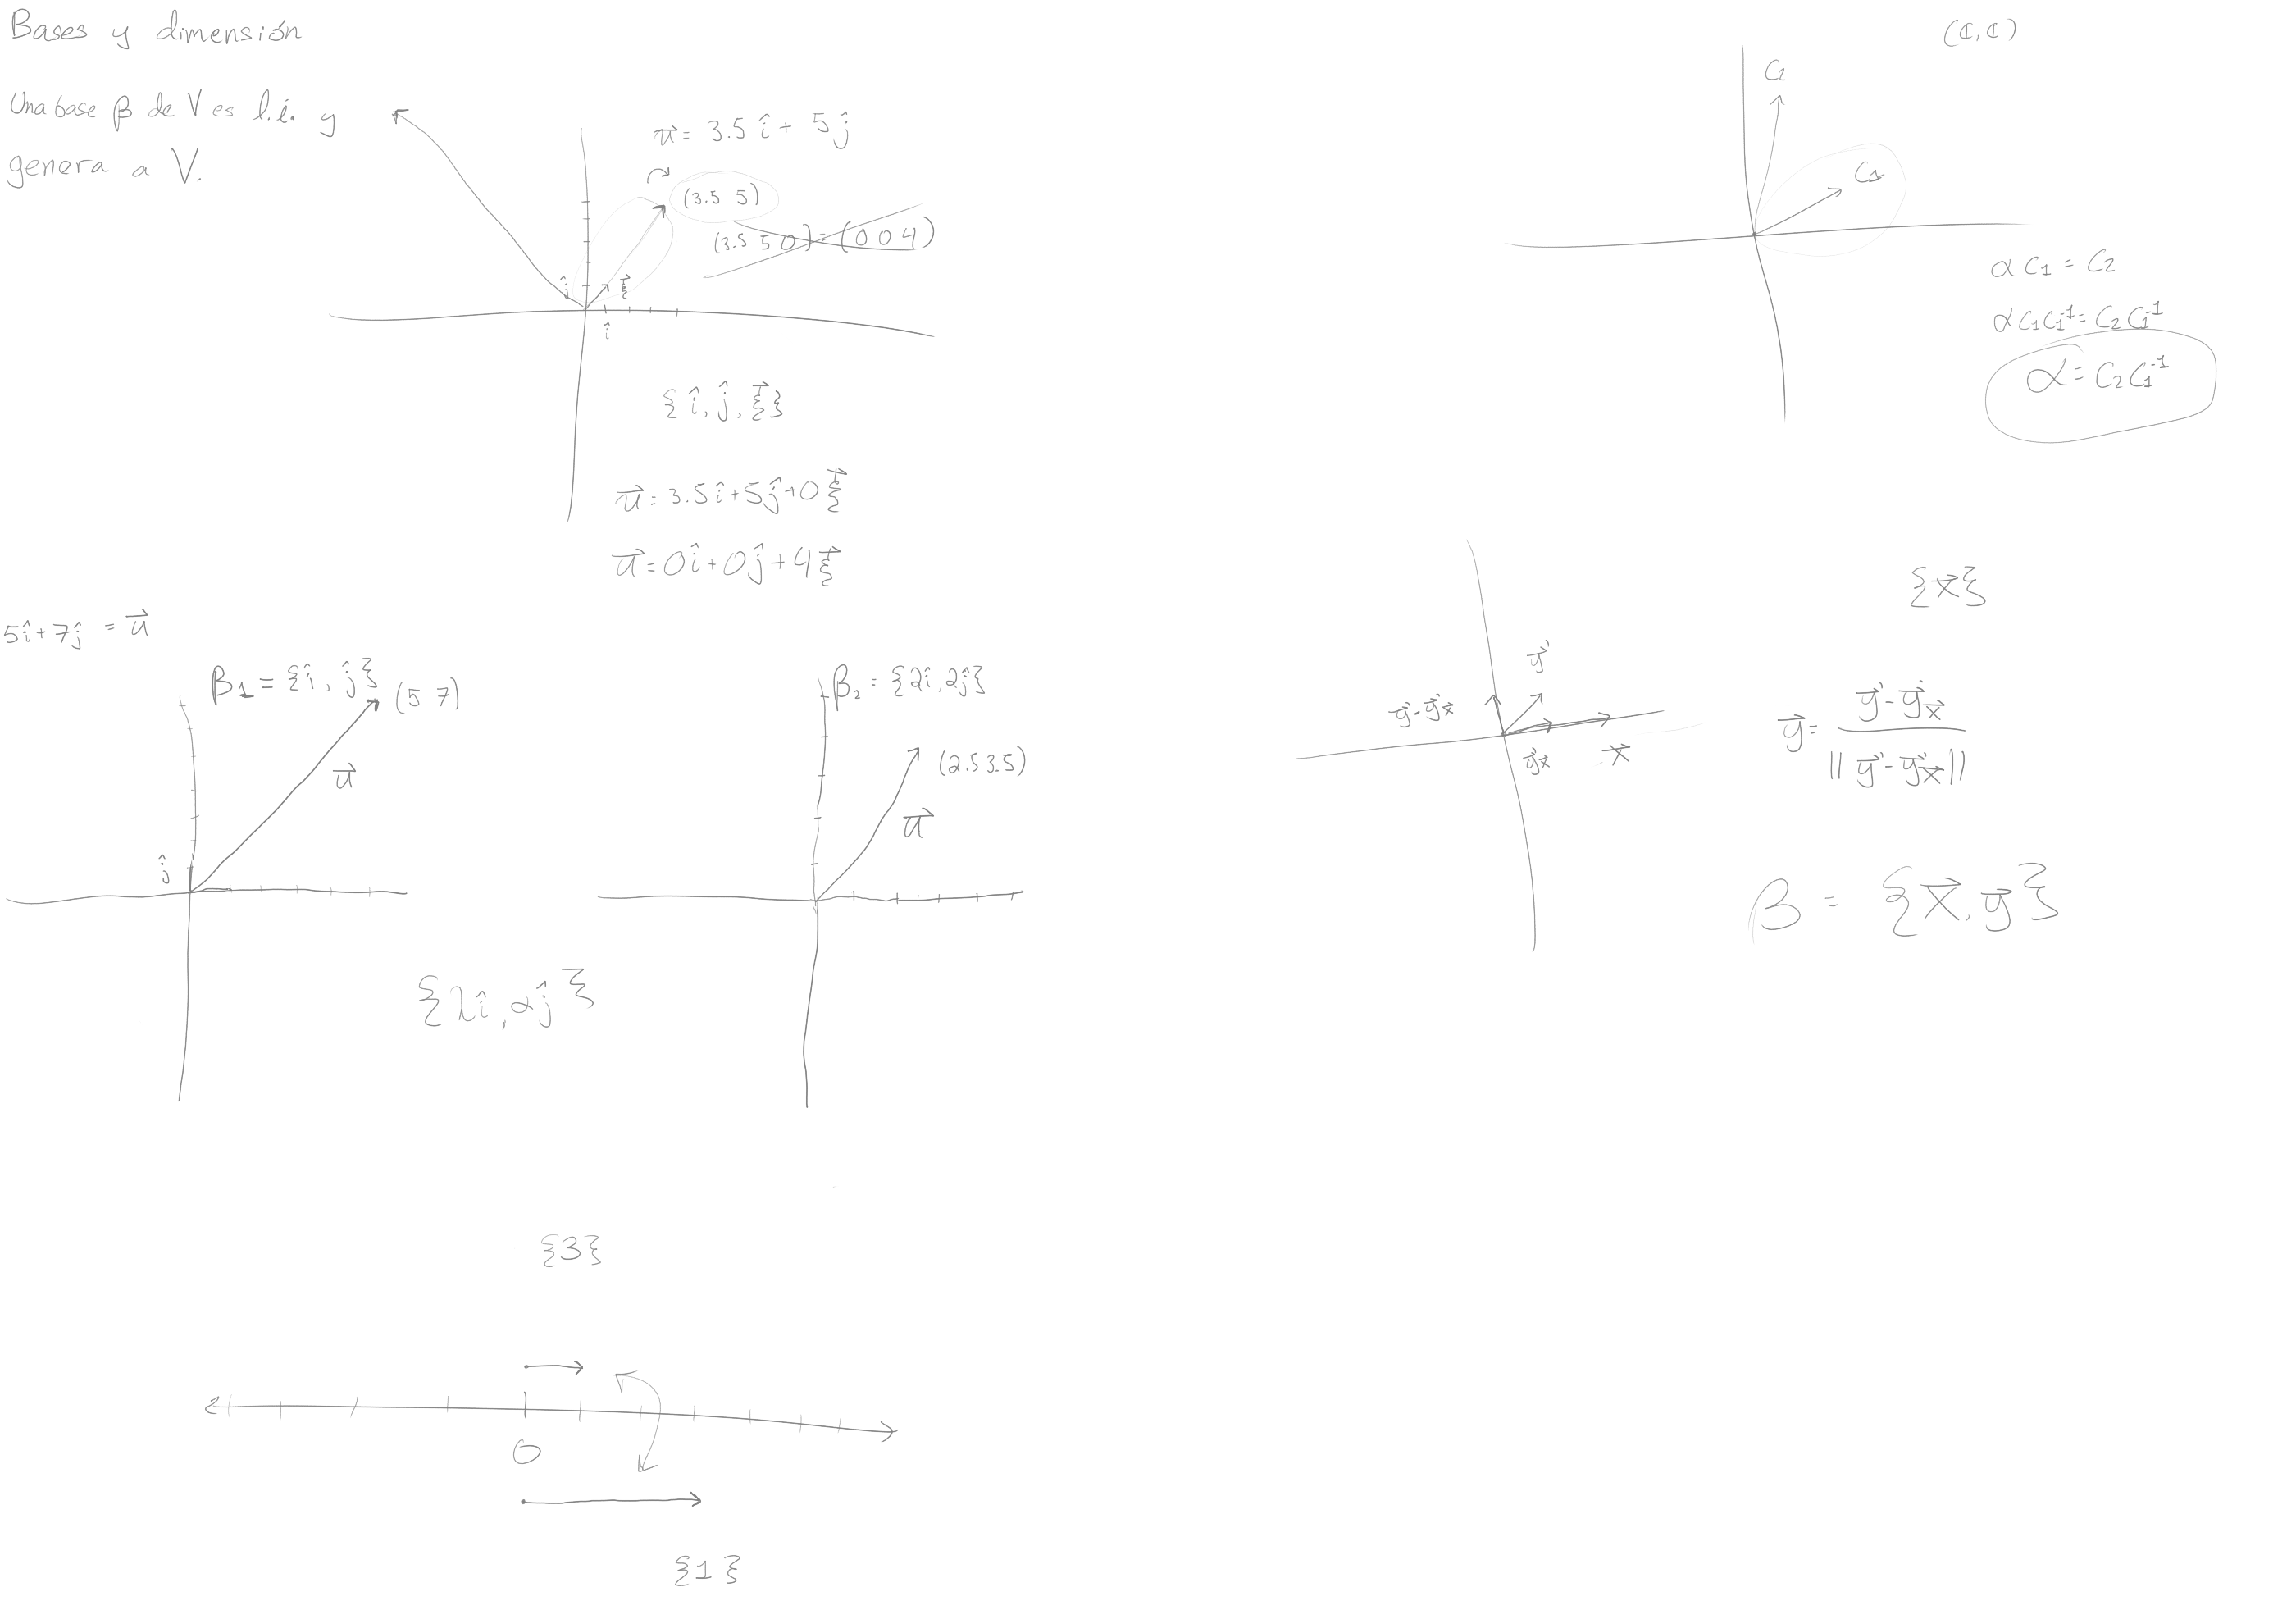 Bases y dimensión
Una base β de V es l.i. y
genera a V.
u⃗ = 3.5 î + 5 ĵ
(3.5 5)
(3.5 5 0) = (0 0 4)
ĵ
ξ⃗
î
{î, ĵ, ξ⃗}
u⃗ = 3.5 î + 5 ĵ + 0 ξ⃗
u⃗ = 0 î + 0 ĵ + 4 ξ⃗
5î + 7ĵ = u⃗
β1 = {î, ĵ}
(5 7)
u⃗
ĵ
β2 = {2î, 2ĵ}
(2.5 3.5)
u⃗
{λî, αĵ}
{3}
0
{1}
(ℂ, ℂ)
C2
C1
αC1 = C2
αC1C1⁻¹ = C2C1⁻¹
α = C2C1⁻¹
{x⃗}
y⃗'
y⃗' - y⃗'x⃗
y⃗'x⃗
x⃗
y⃗ = y⃗' - y⃗'x⃗
|| y⃗' - y⃗'x⃗ ||
β = {x⃗, y⃗}